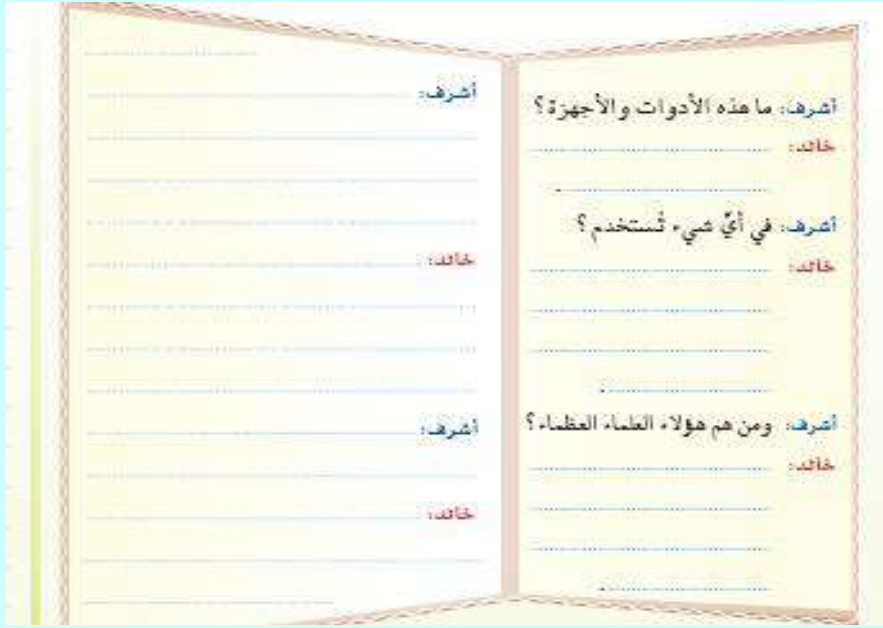 أشرف: ما هذه الأدوات والأجهزة؟
خالد:
أشرف: في أيِّ شيء تُستخدم؟
خالد:
أشرف: ومن هم هؤلاء العلماء العظماء؟
خالد:
أشرف:
خالد:
أشرف:
خالد: